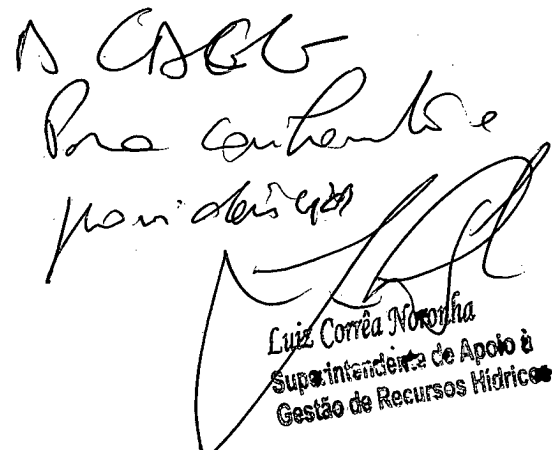 A CAGG
Para conhecimento e
providências
Luiz Corrêa Noronha
Superintendente de Apoio à
Gestão de Recursos Hídricos